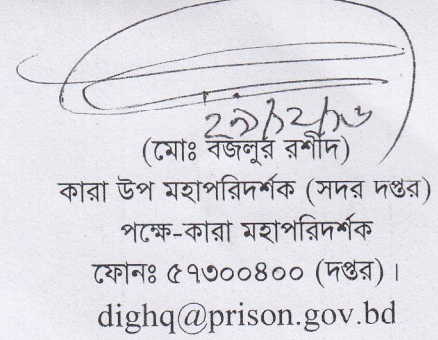 ২৯/১২/১৬
(মোঃ বজলুর রশীদ)
কারা উপ মহাপরিদর্শক (সদর দপ্তর)
পক্ষে-কারা মহাপরিদর্শক
ফোনঃ ৫৭৩০০৪০০ (দপ্তর) ।
dighq@prison.gov.bd